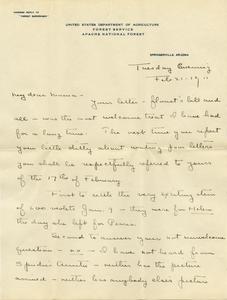 ADDRESS REPLY TO
"FOREST SUPERVISOR"
UNITED STATES DEPARTMENT OF AGRICULTURE
FOREST SERVICE
APACHE NATIONAL FOREST
SPRINGERVILLE ARIZONA
Tuesday Evening
Feb 21-1911
My dear Mama -
Your letter - florist's bill and
all - was the most welcome treat I have had
for a long time. The next time you repeat
your little ditty about writing fool letters
you shall be respectfully referred to yours
of the 17th of February
First to settle the very exciting item
of 200 violets Jan. 9 - they were for Helen
the day she left for
Second to answer your not unwelcome
question - no - I have not heard from
- neither has the picture
arrived - neither has anybody else's picture